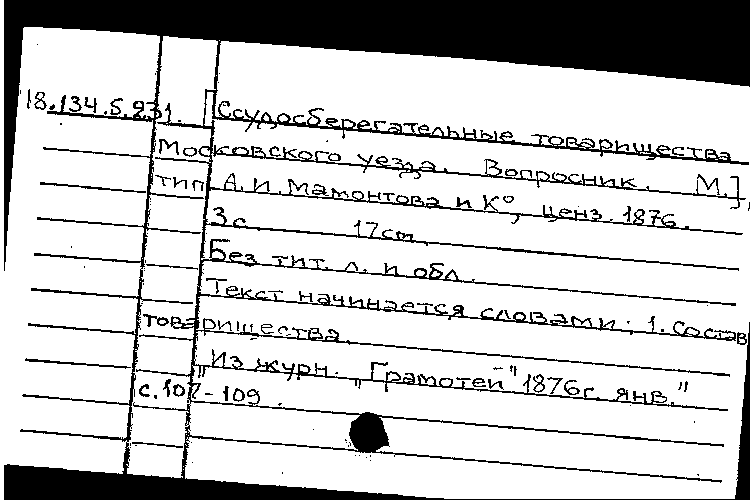 18.134.5.231. [Ссудосберегательные товарищества
Московского уезда. Вопросник. М.],
тип. А.И. Мамонтова и К°, ценз. 1876.
3 с. 17 см.
Без тит. л. и обл.
Текст начинается словами: 1. Состав
товарищества.
"Из журн. "Грамотей" 1876 г. янв."
с. 107-109.